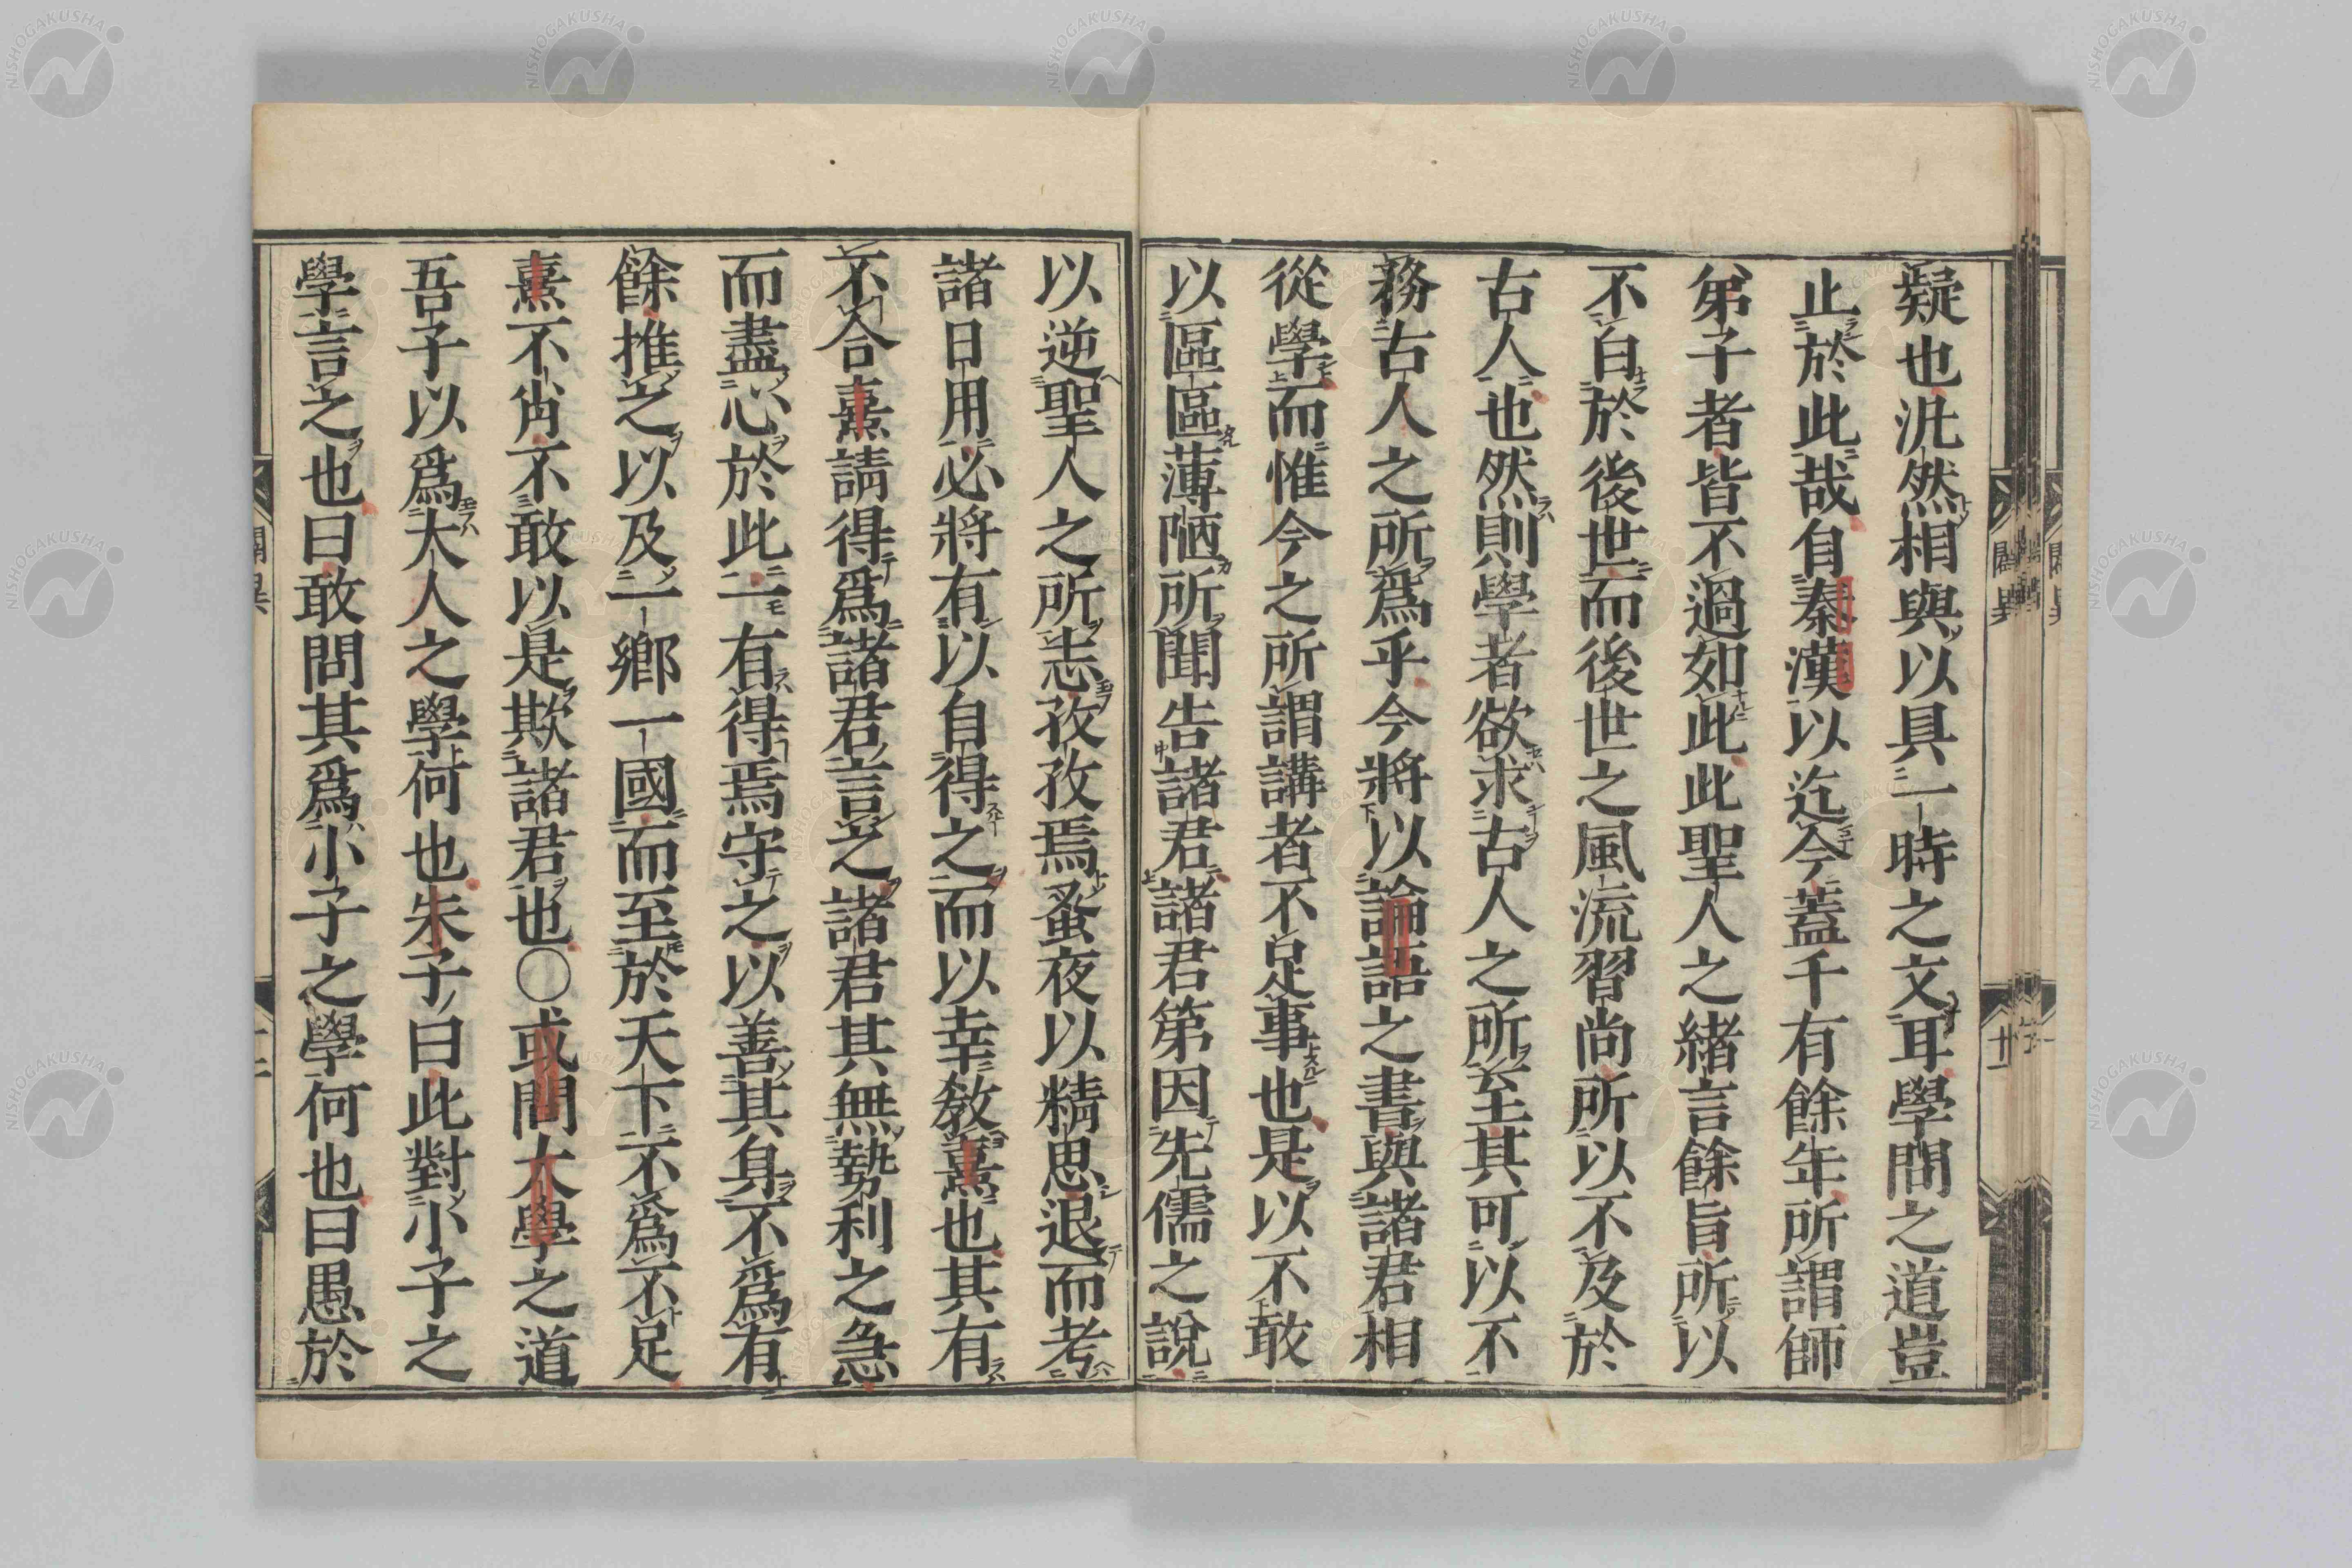 疑也泚然相與以具一時之文耳學問之道豈
止於此哉自秦漢以迄今蓋千有餘年所謂師
弟子者皆不過如此此聖人之緒言餘旨所以
不白於後世而後世之風流習尚所以不及於
古人也然則學者欲求古人之所至其可以不
務古人之所爲乎今將以論語之書與諸君相
從學而惟今之所謂講者不足事也是以不敢
以區區薄陋所聞告諸君諸君第因先儒之說
以逆聖人之所志孜孜焉蚤夜以精思退而考
諸日用必將有以自得之而以幸敎熹也其有
不合熹請得爲諸君言之諸君其無勢利之急
而盡心於此一有得焉守之以善其身不爲有
餘推之以及一鄉一國而至於天下不爲不足
熹不肖不敢以是欺諸君也〇或問大學之道
吾子以爲大人之學何也朱子曰此對小子之
學言之也曰敢問其爲小子之學何也曰愚於
闢異
廿一
NISHOGAKUSHA